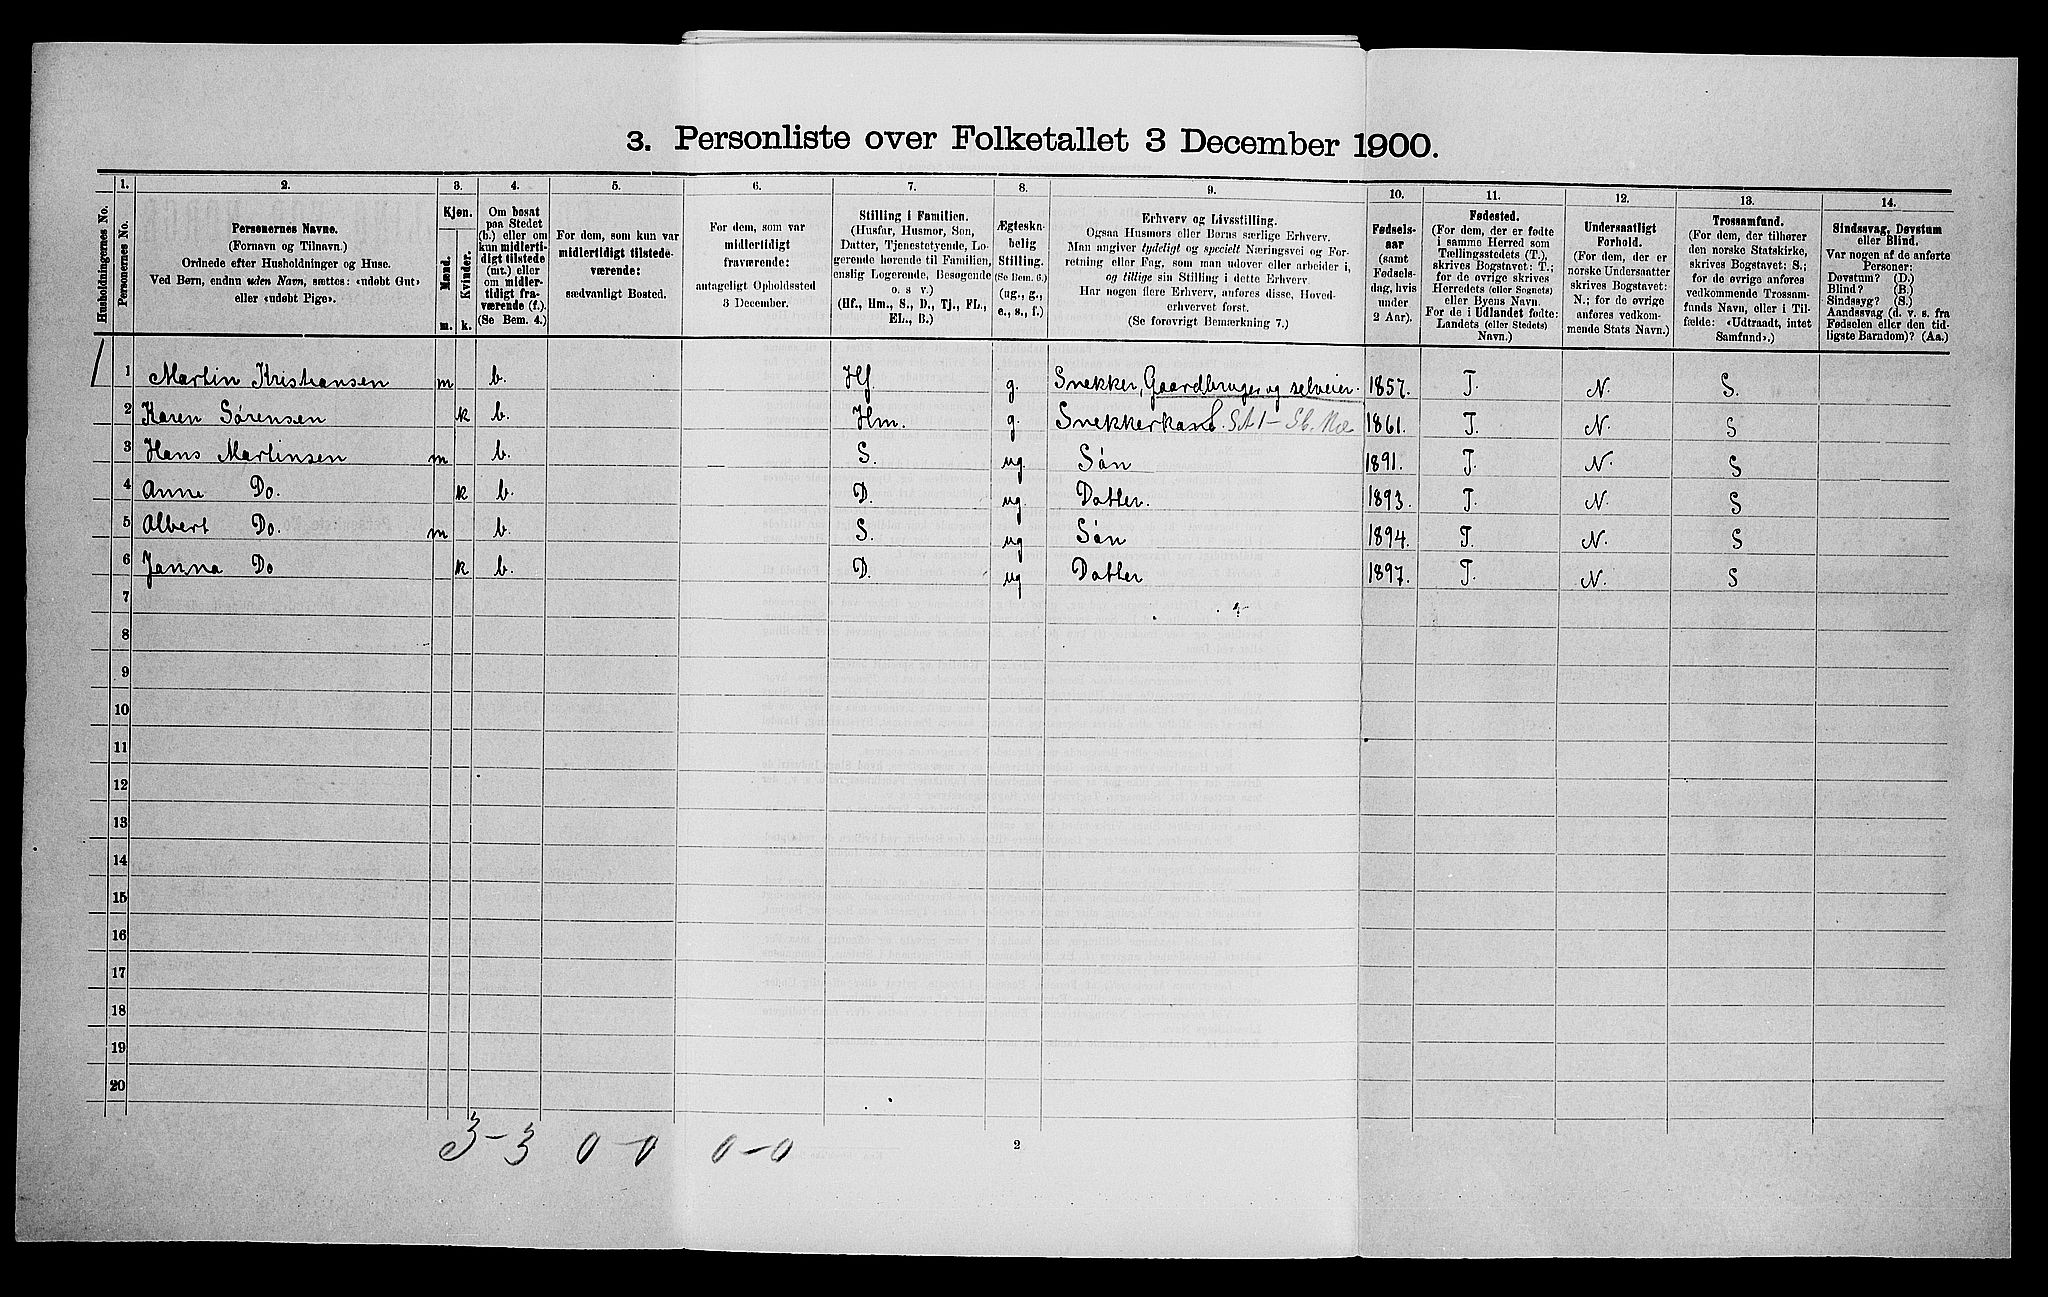 3. Personliste over Folketallet 3 December 1900.
Husholdningernes No.
1. Personernes No.
2. Personernes Navne.
(Fornavn og Tilnavn.)
Ordnede efter Husholdninger og Huse.
Ved Børn, endnu uden Navn, sættes: «udøbt Gut»
eller «udøbt Pige».
3. Kjøn.
Mænd. Kvinder.
m. k.
4. Om bosat
paa Stedet
(b.) eller om
kun midlerti-
digt tilstede
(mt.) eller
om midler-
tidigt fra-
værende (f.).
(Se Bem. 4.)
5. For dem, som kun var
midlertidigt tilstede-
værende:
sædvanligt Bosted.
6. For dem, som var
midlertidigt
fraværende:
antageligt Opholdssted
3 December.
7. Stilling i Familien.
(Husfar, Husmor, Søn,
Datter, Tjenestetyende, Lo-
gerende hørende til Familien,
enslig Logerende, Besøgende
o. s v.)
(Hf., Hm., S., D., Tj., FL.,
EL., B.)
8. Ægteska-
belig
Stilling.
(Se Bem. 6.)
(ug., g.,
e., s., f.)
9. Erhverv og Livsstilling.
Ogsaa Husmors eller Børns særlige Erhverv.
Man angiver tydeligt og specielt Næringsvei og For-
retning eller Fag, som man udøver eller arbeider i,
og tillige sin Stilling i dette Erhverv
Har nogen flere Erhverv, anføres disse, Hoved-
erhvervet først.
(Se forøvrigt Bemærkning 7.)
10. Fødsels-
aar
(samt
Fødsels-
dag, hvis
under
2 Aar).
11. Fødested.
(For dem, der er fødte
i samme Herred som
Tællingsstedets (T.),
skrives Bogstavet: T.;
for de øvrige skrives
Herredets (eller Sognets)
eller Byens Navn.
For de i Udlandet fødte:
Landets (eller Stedets)
Navn.)
12. Undersaatligt
Forhold.
(For dem, der er
norske Undersaatter
skrives Bogstavet:
N.; for de øvrige
anføres vedkom-
mende Stats Navn.)
13. Trossamfund.
(For dem, der tilhører
den norske Statskirke,
skrives Bogstavet: S.;
for de øvrige anføres
vedkommende Trossam-
funds Navn, eller i Til-
fælde: «Udtraadt, intet
Samfund».)
14. Sindssvag, Døvstum
eller Blind.
Var nogen af de anførte
Personer:
Døvstum? (D.)
Blind? (B.)
Sindssyg? (S.)
Aandssvag (d. v. s. fra
Fødselen eller den tid-
ligste Barndom)? (Aa.)
1 1 Martin Kristiansen m b. Hf g. Snekker, Gaardbruger og selveier. 1857. T. N. S.
2 Karen Sørensen k b. Hm. g. 1861. T. N. S
3 Hans Martinsen m b. S. ug. Søn 1891. T. N. S
4 Anne Do. k b. D. ug. Datter. 1893. T. N. S
5 Albert Do. m b. S. ug Søn 1894. T. N. S
6 Janna Do k b. D. ug Datter 1897. T. N. S
7
8
9
10
11
12
13
14
15
16
17
18
19
20
3-3 0-0 0-0
2